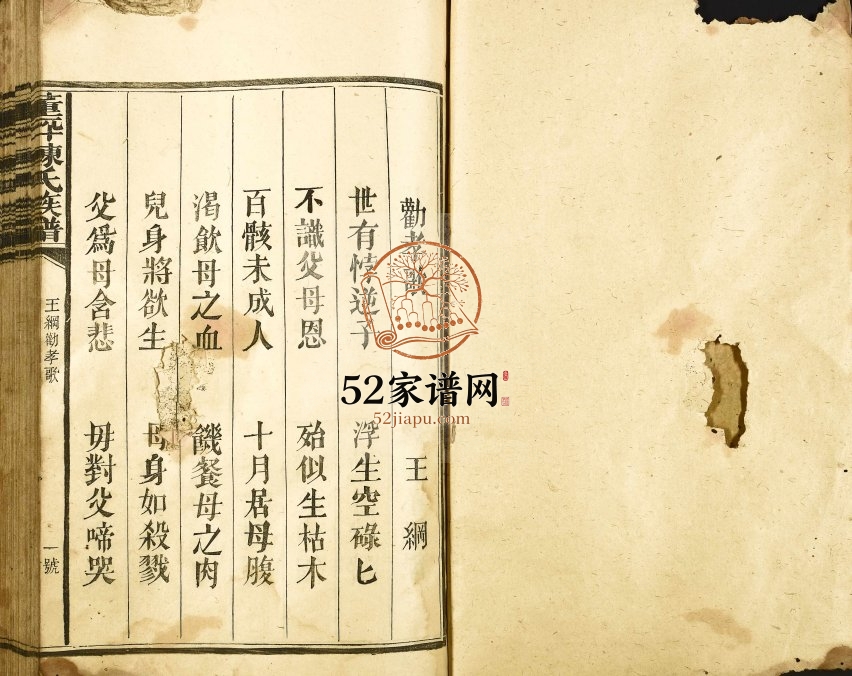 勸孝歌 王綱
世有悖逆子 浮生空碌匕
不識父母恩 殆似生枯木
百骸未成人 十月居母腹
渴飲母之血 饑餐母之肉
兒身將欲生 母身如殺戮
父爲母含悲 毋對父啼哭
陳氏族譜
王綱勸孝歌
一號
52家谱网
52jiapu.com